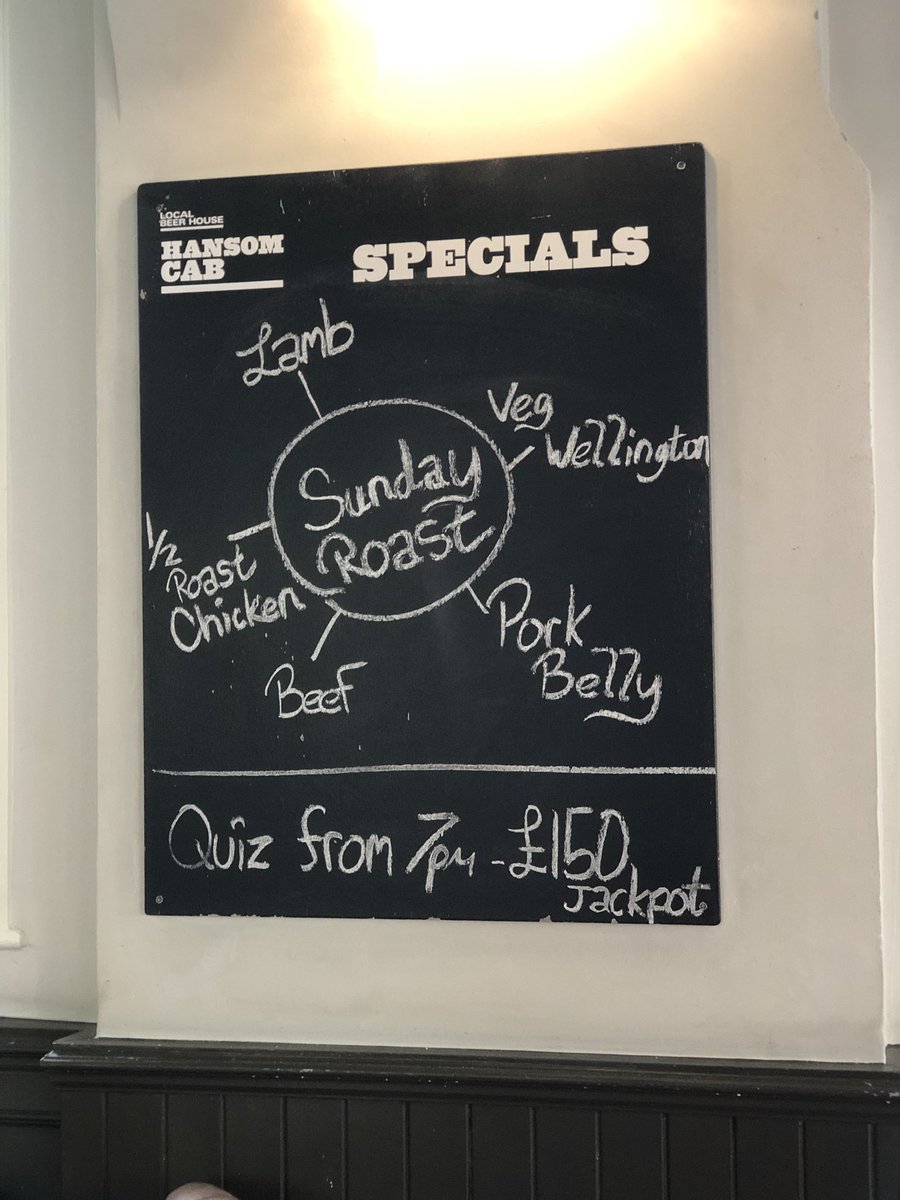 LOCAL
BEER HOUSE
HANSOM
CAB
SPECIALS
Lamb
Veg
Wellington
Sunday
Roast
1/2
Roast
Chicken
Pork
Belly
Beef
Quiz from 7pm - £150
Jackpot